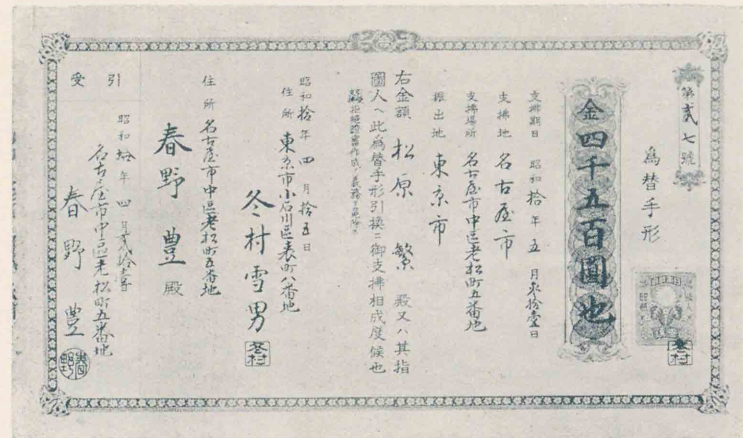 第貳七號
爲替手形
金四千五百圓也
支拂期日 昭和拾年五月参拾壹日
支拂地 名古屋市
支拂場所 名古屋市中區老松町五番地
振出地 東京市
右金額 松原繁 殿又ハ其指
圖人ヘ此爲替手形引換ニ御支拂相成度候也
昭和拾年四月拾五日
住所 東京市小石川區表町八番地
冬村雪男
冬村
住所 名古屋市中區老松町五番地
春野豊殿
引受
昭和拾年四月貳拾
名古屋市中區老松町五番地
春野豊
春野